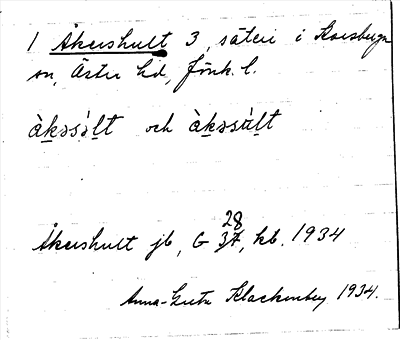 1 Åkershult 3, säteri i Korsberga
sn, Östra hd, Jönk. l.
àkəsəl̀t och àkəsùlt
Åkershult jb, G 28, kb. 1934
Anna-Greta Klackenberg 1934.